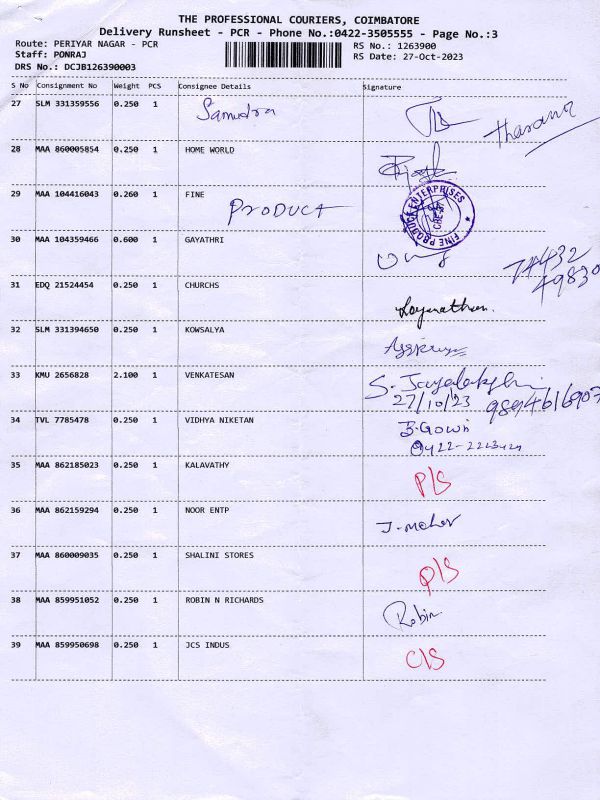 THE PROFESSIONAL COURIERS, COIMBATORE
Delivery Runsheet - PCR - Phone No.:0422-3505555 - Page No.:3
Route: PERIYAR NAGAR - PCR RS No.: 1263900
Staff: PONRAJ RS Date: 27-Oct-2023
DRS No.: DCJB126390003
S No Consignment No Weight PCS Consignee Details Signature
27 SLM 331359556 0.250 1 Samudra Tharani
28 MAA 860005854 0.250 1 HOME WORLD
29 MAA 104416043 0.260 1 FINE
PRODUCT FINE PRODUCT ENTERPRISES CBE
30 MAA 104359466 0.600 1 GAYATHRI
74432
49830
31 EDQ 21524454 0.250 1 CHURCHS
32 SLM 331394650 0.250 1 KOWSALYA
33 KMU 2656828 2.100 1 VENKATESAN S. Jayalakshmi
27/10/23 9894616907
34 TVL 7785478 0.250 1 VIDHYA NIKETAN B. Gowri
0422-2223424
35 MAA 862185023 0.250 1 KALAVATHY P/S
36 MAA 862159294 0.250 1 NOOR ENTP J. meher
37 MAA 860009035 0.250 1 SHALINI STORES P/S
38 MAA 859951052 0.250 1 ROBIN N RICHARDS Robin
39 MAA 859950698 0.250 1 JCS INDUS C/S